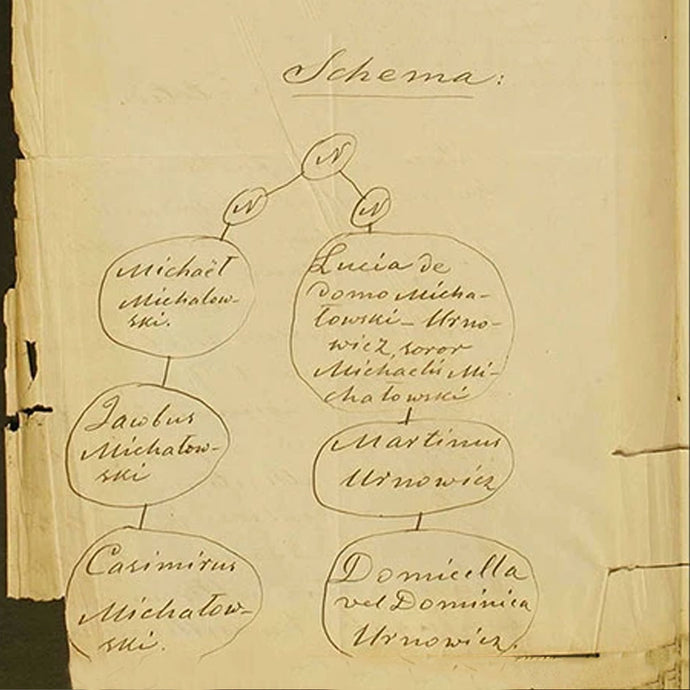 Schema:
N
N
N
Michaël
Michałow-
ski.
Lucia de
domo Micha-
łowski - Urno-
wicz, soror
Michaelis Mi-
chałowski
Jacobus
Michałow-
ski
Martinus
Urnowicz
Casimirus
Michałow-
ski.
Domicella
vel Dominica
Urnowicz.